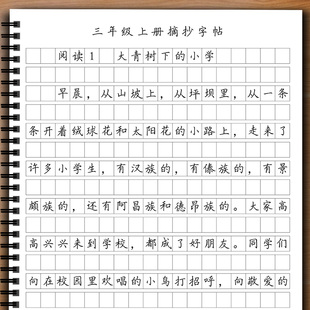 三年级上册摘抄字帖
阅读1 大青树下的小学
早晨，从山坡上，从坪坝里，从一条
条开着绒球花和太阳花的小路上，走来了
许多小学生，有汉族的，有傣族的，有景
颇族的，还有阿昌族和德昂族的。大家高
高兴兴来到学校，都成了好朋友。同学们
向在校园里欢唱的小鸟打招呼，向敬爱的